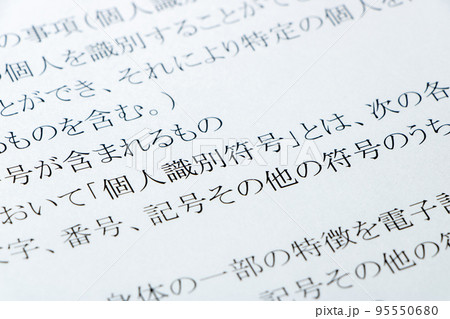 の事項(個人識別
個人を識別することがで
とができ、それにより特定の個人を
るものを含む。)
号が含まれるもの
おいて「個人識別符号」とは、次の各
文字、番号、記号その他の符号のうち
身体の一部の特徴を電子計
記号その他の符
PIXTA
pixta.jp - 95550680